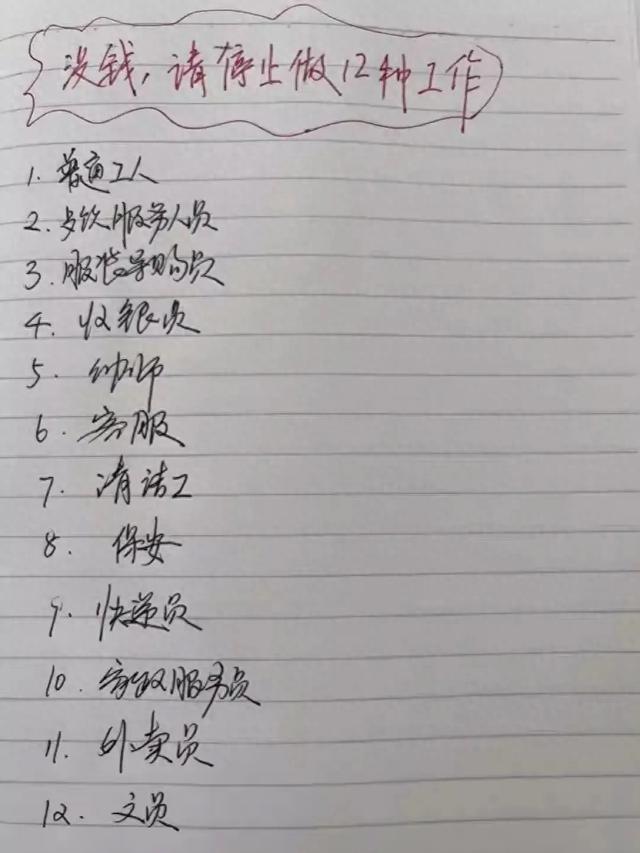 没钱，请停止做12种工作
1. 普通工人
2. 餐饮服务人员
3. 服装导购员
4. 收银员
5. 幼师
6. 客服
7. 清洁工
8. 保安
9. 快递员
10. 家政服务员
11. 外卖员
12. 文员